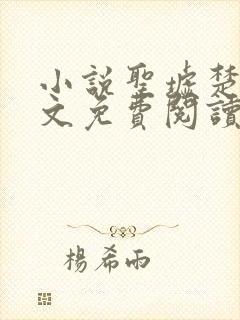 小說聖墟楚
文免費閱讀
楊希雨